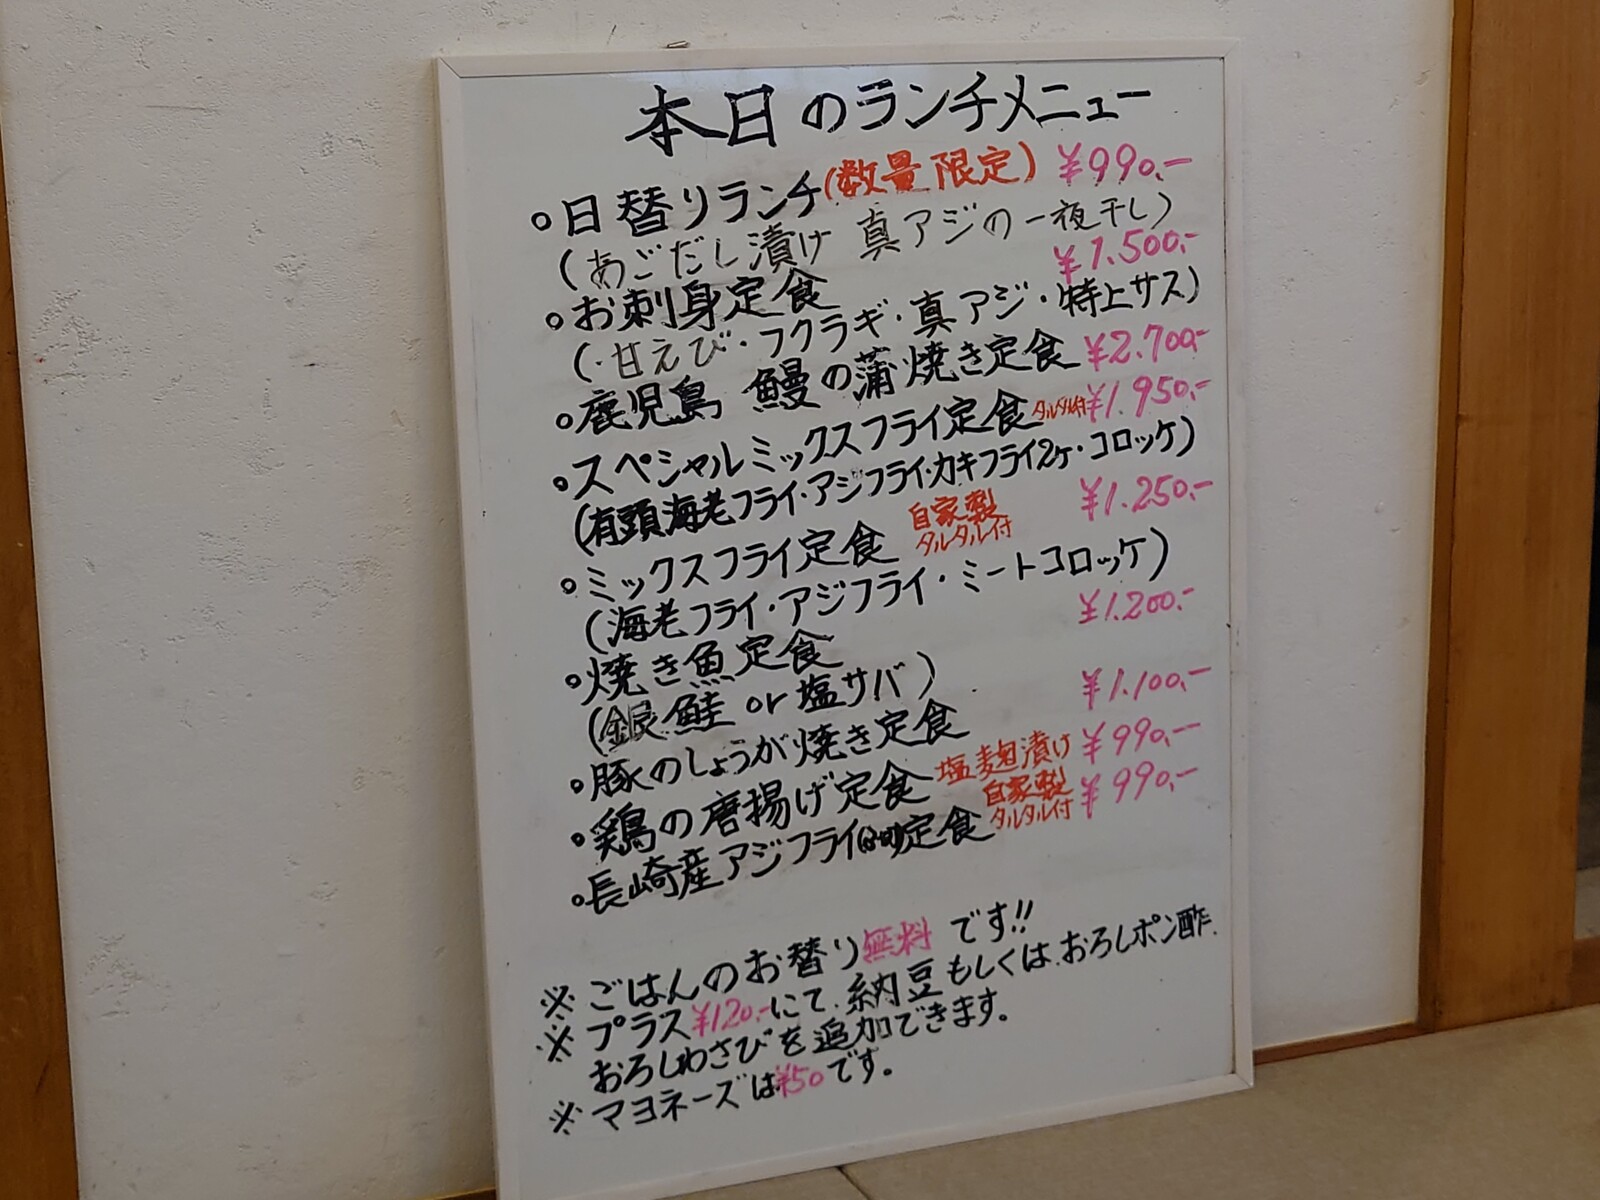 本日のランチメニュー
。日替りランチ(数量限定) ¥990.-
(あごだし漬け 真アジの一夜干し)
。お刺身定食 ¥1.500.-
(・甘えび・フクラギ・真アジ・特上サス)
。鹿児島 鰻の蒲焼き定食 ¥2.700.-
。スペシャルミックスフライ定食 タルタル付 ¥1.950.-
(有頭海老フライ・アジフライ・カキフライ2ヶ・コロッケ)
。ミックスフライ定食 自家製タルタル付 ¥1.250.-
(海老フライ・アジフライ・ミートコロッケ)
。焼き魚定食 ¥1.200.-
(銀鮭 or 塩サバ)
。豚のしょうが焼き定食 ¥1.100.-
。鶏の唐揚げ定食 塩麹漬け ¥990.-
。長崎産アジフライ定食 自家製タルタル付 ¥990.-
※ごはんのお替り無料です!!
※プラス¥120.-にて、納豆もしくは、おろしポン酢、
おろしわさびを追加できます。
※マヨネーズは¥50です。